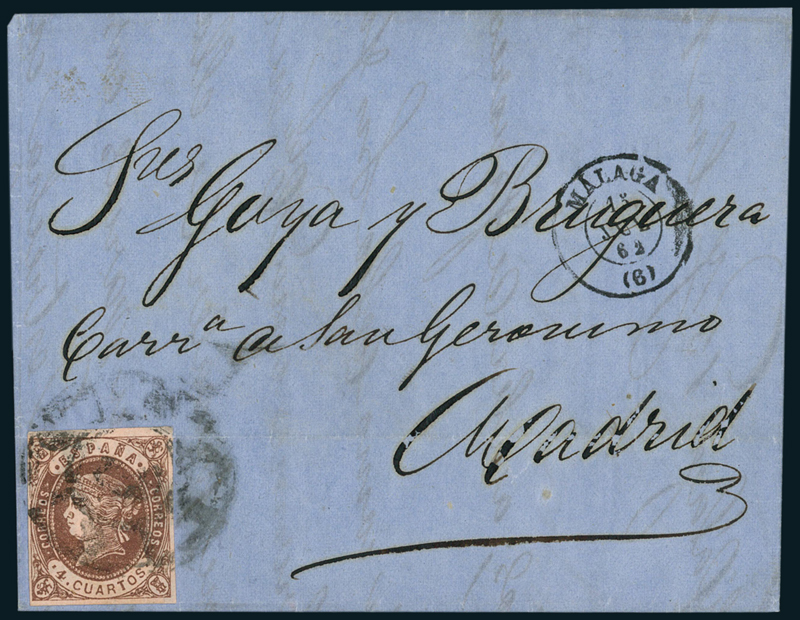 Sres Goya y Bruguera
Carrª de San Geronimo
Madrid
MALAGA
62
(6)
ESPAÑA
CORREOS
CORREOS
4 CUARTOS